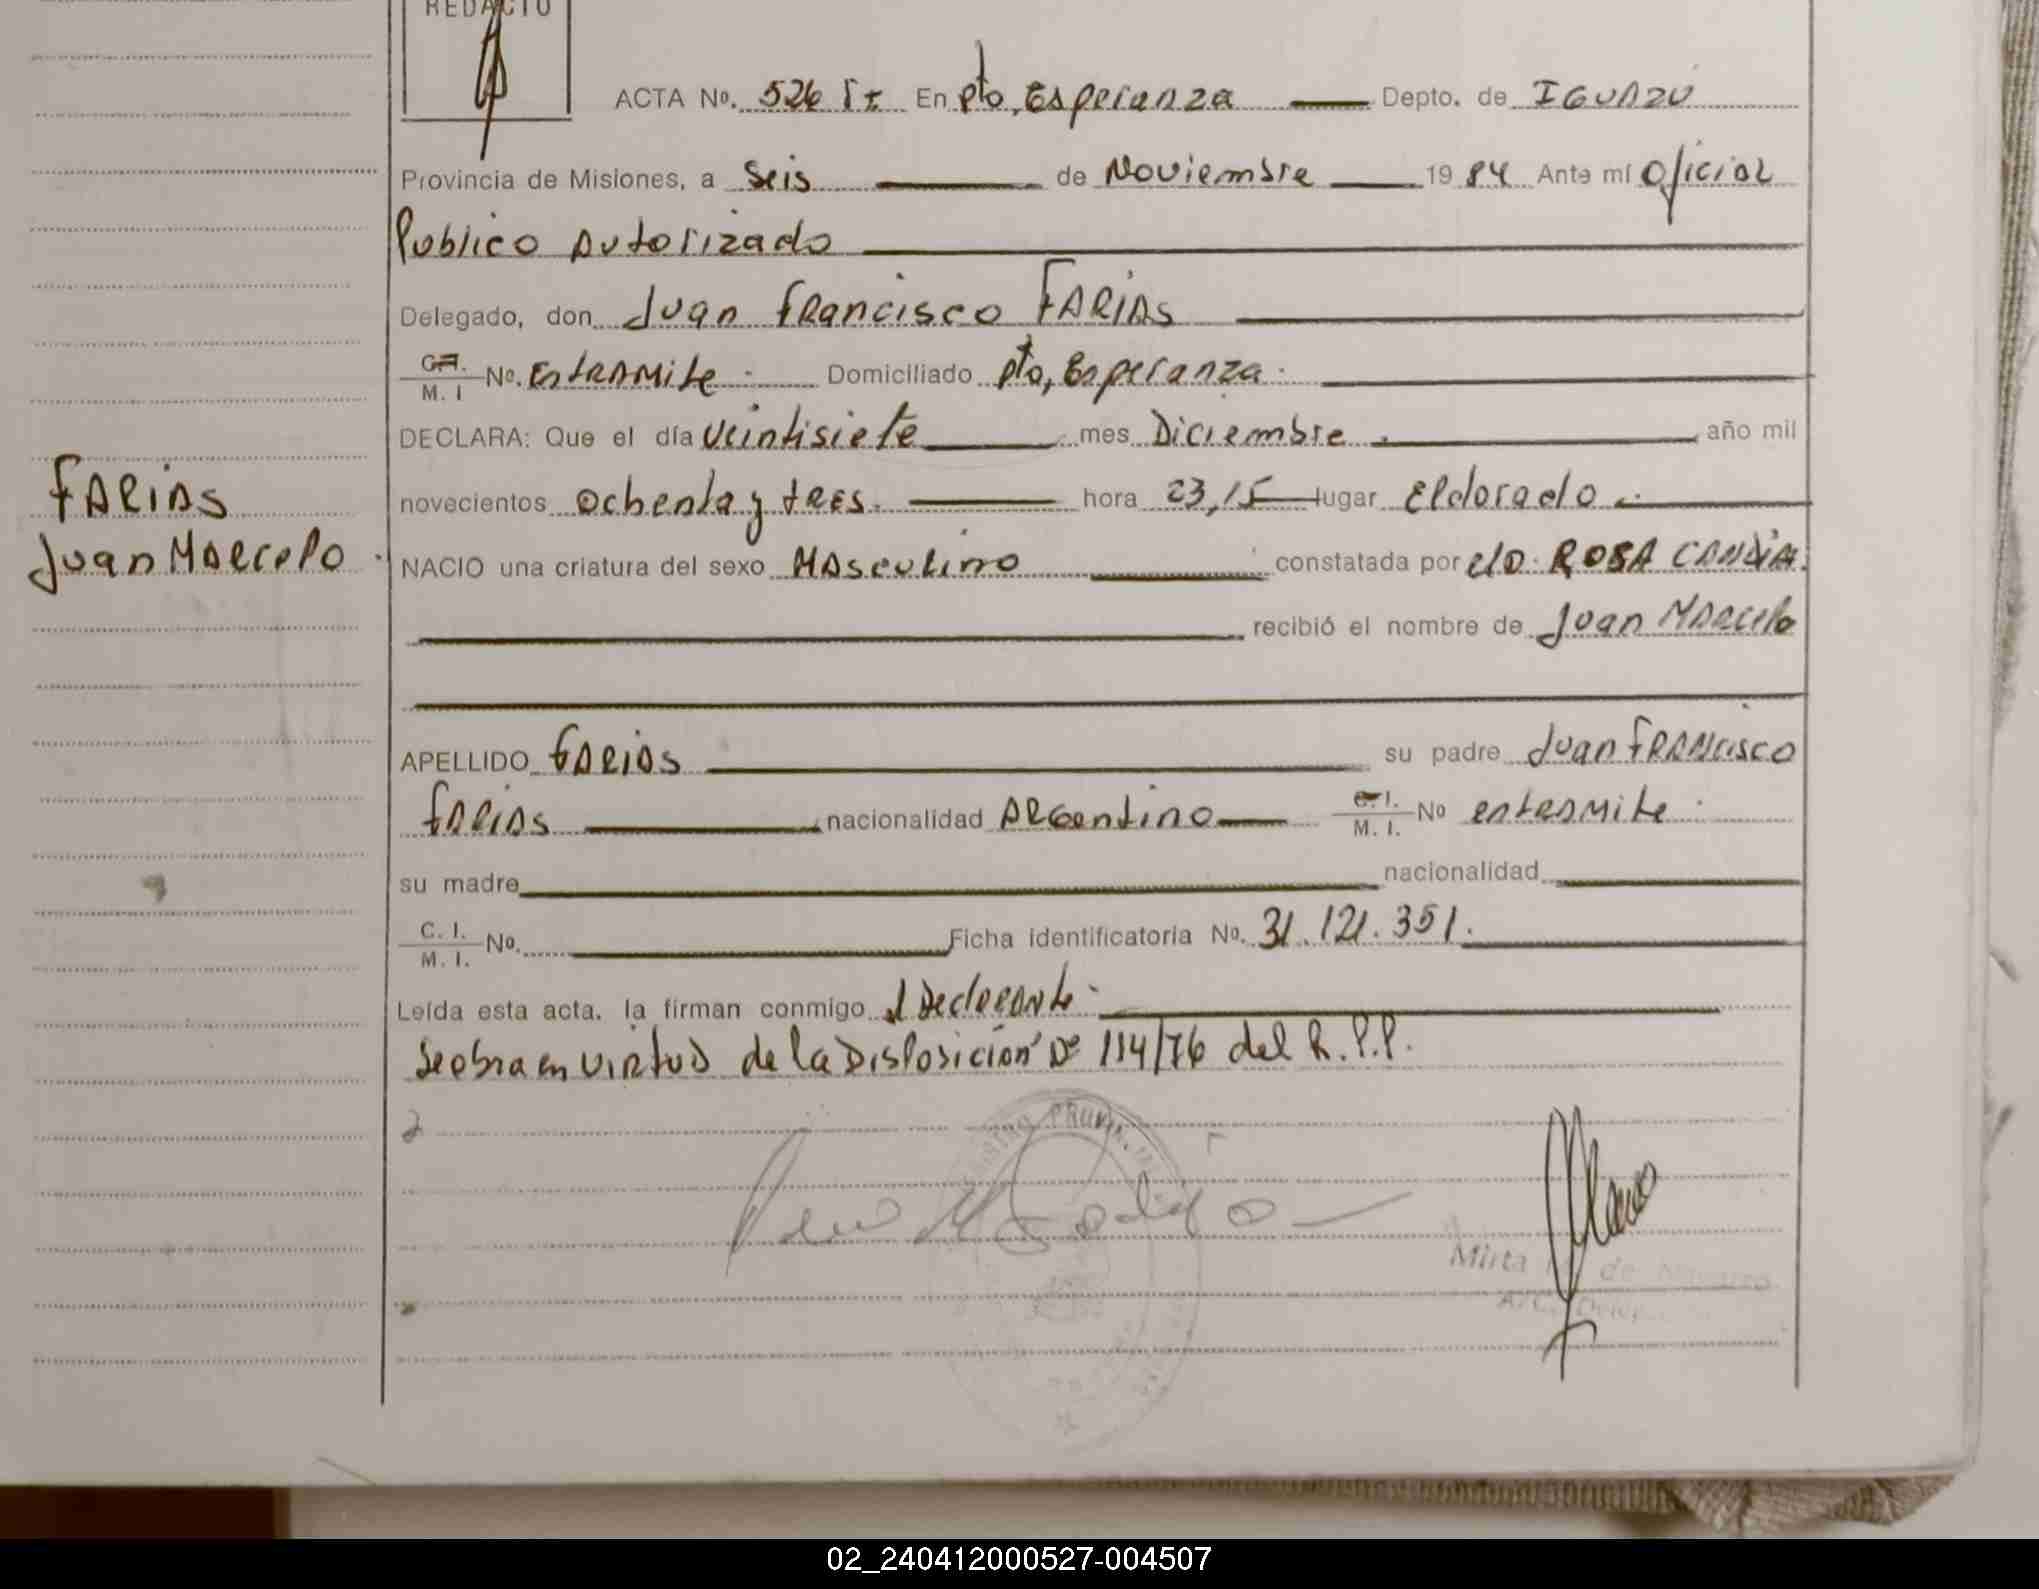 REDACTO
ACTA No. 526 Tr En Pto, Esperanza Depto. de IGUAZU
Provincia de Misiones, a Seis de Noviembre 1984 Ante mí Oficial
Publico Autorizado
Delegado, don Juan Francisco FARIAS
C.I. M. I No. Entramite. Domiciliado Pto, Esperanza.
DECLARA: Que el día veintisiete mes Diciembre año mil
novecientos ochenta y tres. hora 23,15 lugar Eldorado.
FARIAS
Juan Marcelo.
NACIO una criatura del sexo Masculino constatada por c/o. ROSA CANDIA.
recibió el nombre de Juan Marcelo
APELLIDO FARIAS su padre Juan FRANcisco
FARIAS nacionalidad ARGentino C. I. M. I. No entramite.
su madre nacionalidad
C. I. M. I. No. Ficha identificatoria No. 31.121.351.
Leída esta acta, la firman conmigo el Declarante.
Se obra en virtud de la Disposición No 114/76 del R.P.P.
Mirta de
02_240412000527-004507